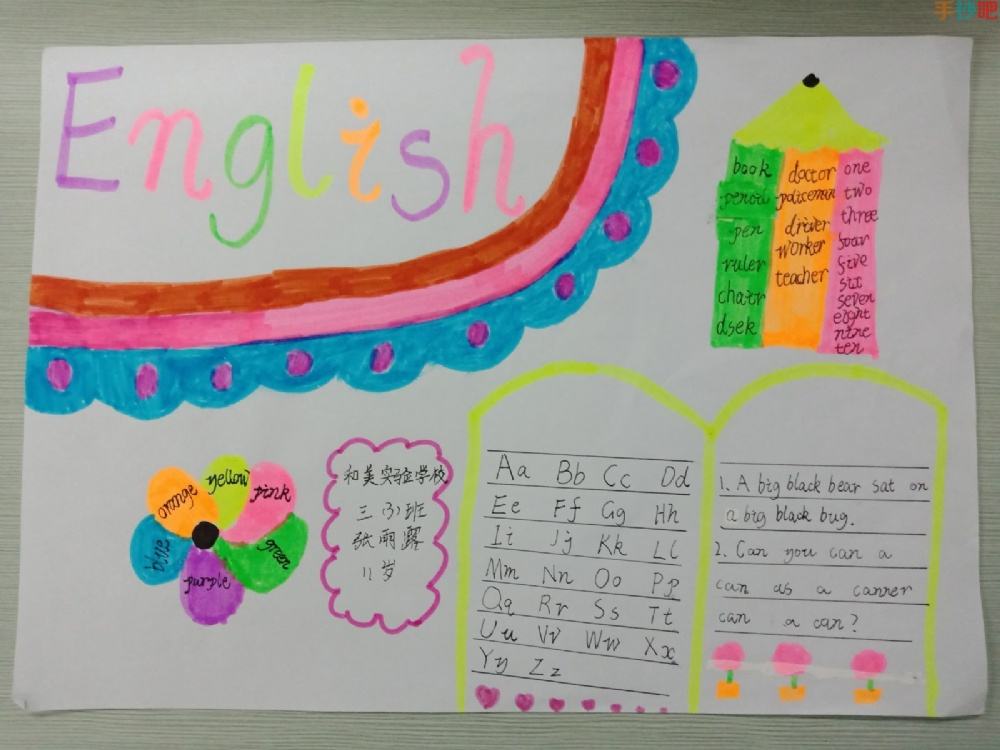 手抄吧
English
book
pencil
pen
ruler
chair
dsek
doctor
policeman
driver
worker
teacher
one
two
three
four
five
six
seven
eight
nine
ten
orange
yellow
pink
green
purple
blue
和美实验学校
三(3)班
张雨露
11岁
Aa Bb Cc Dd
Ee Ff Gg Hh
Ii Jj Kk Ll
Mm Nn Oo Pp
Qq Rr Ss Tt
Uu Vv Ww Xx
Yy Zz
1. A big black bear sat on
a big black bug.
2. Can you can a
can as a canner
can a can?